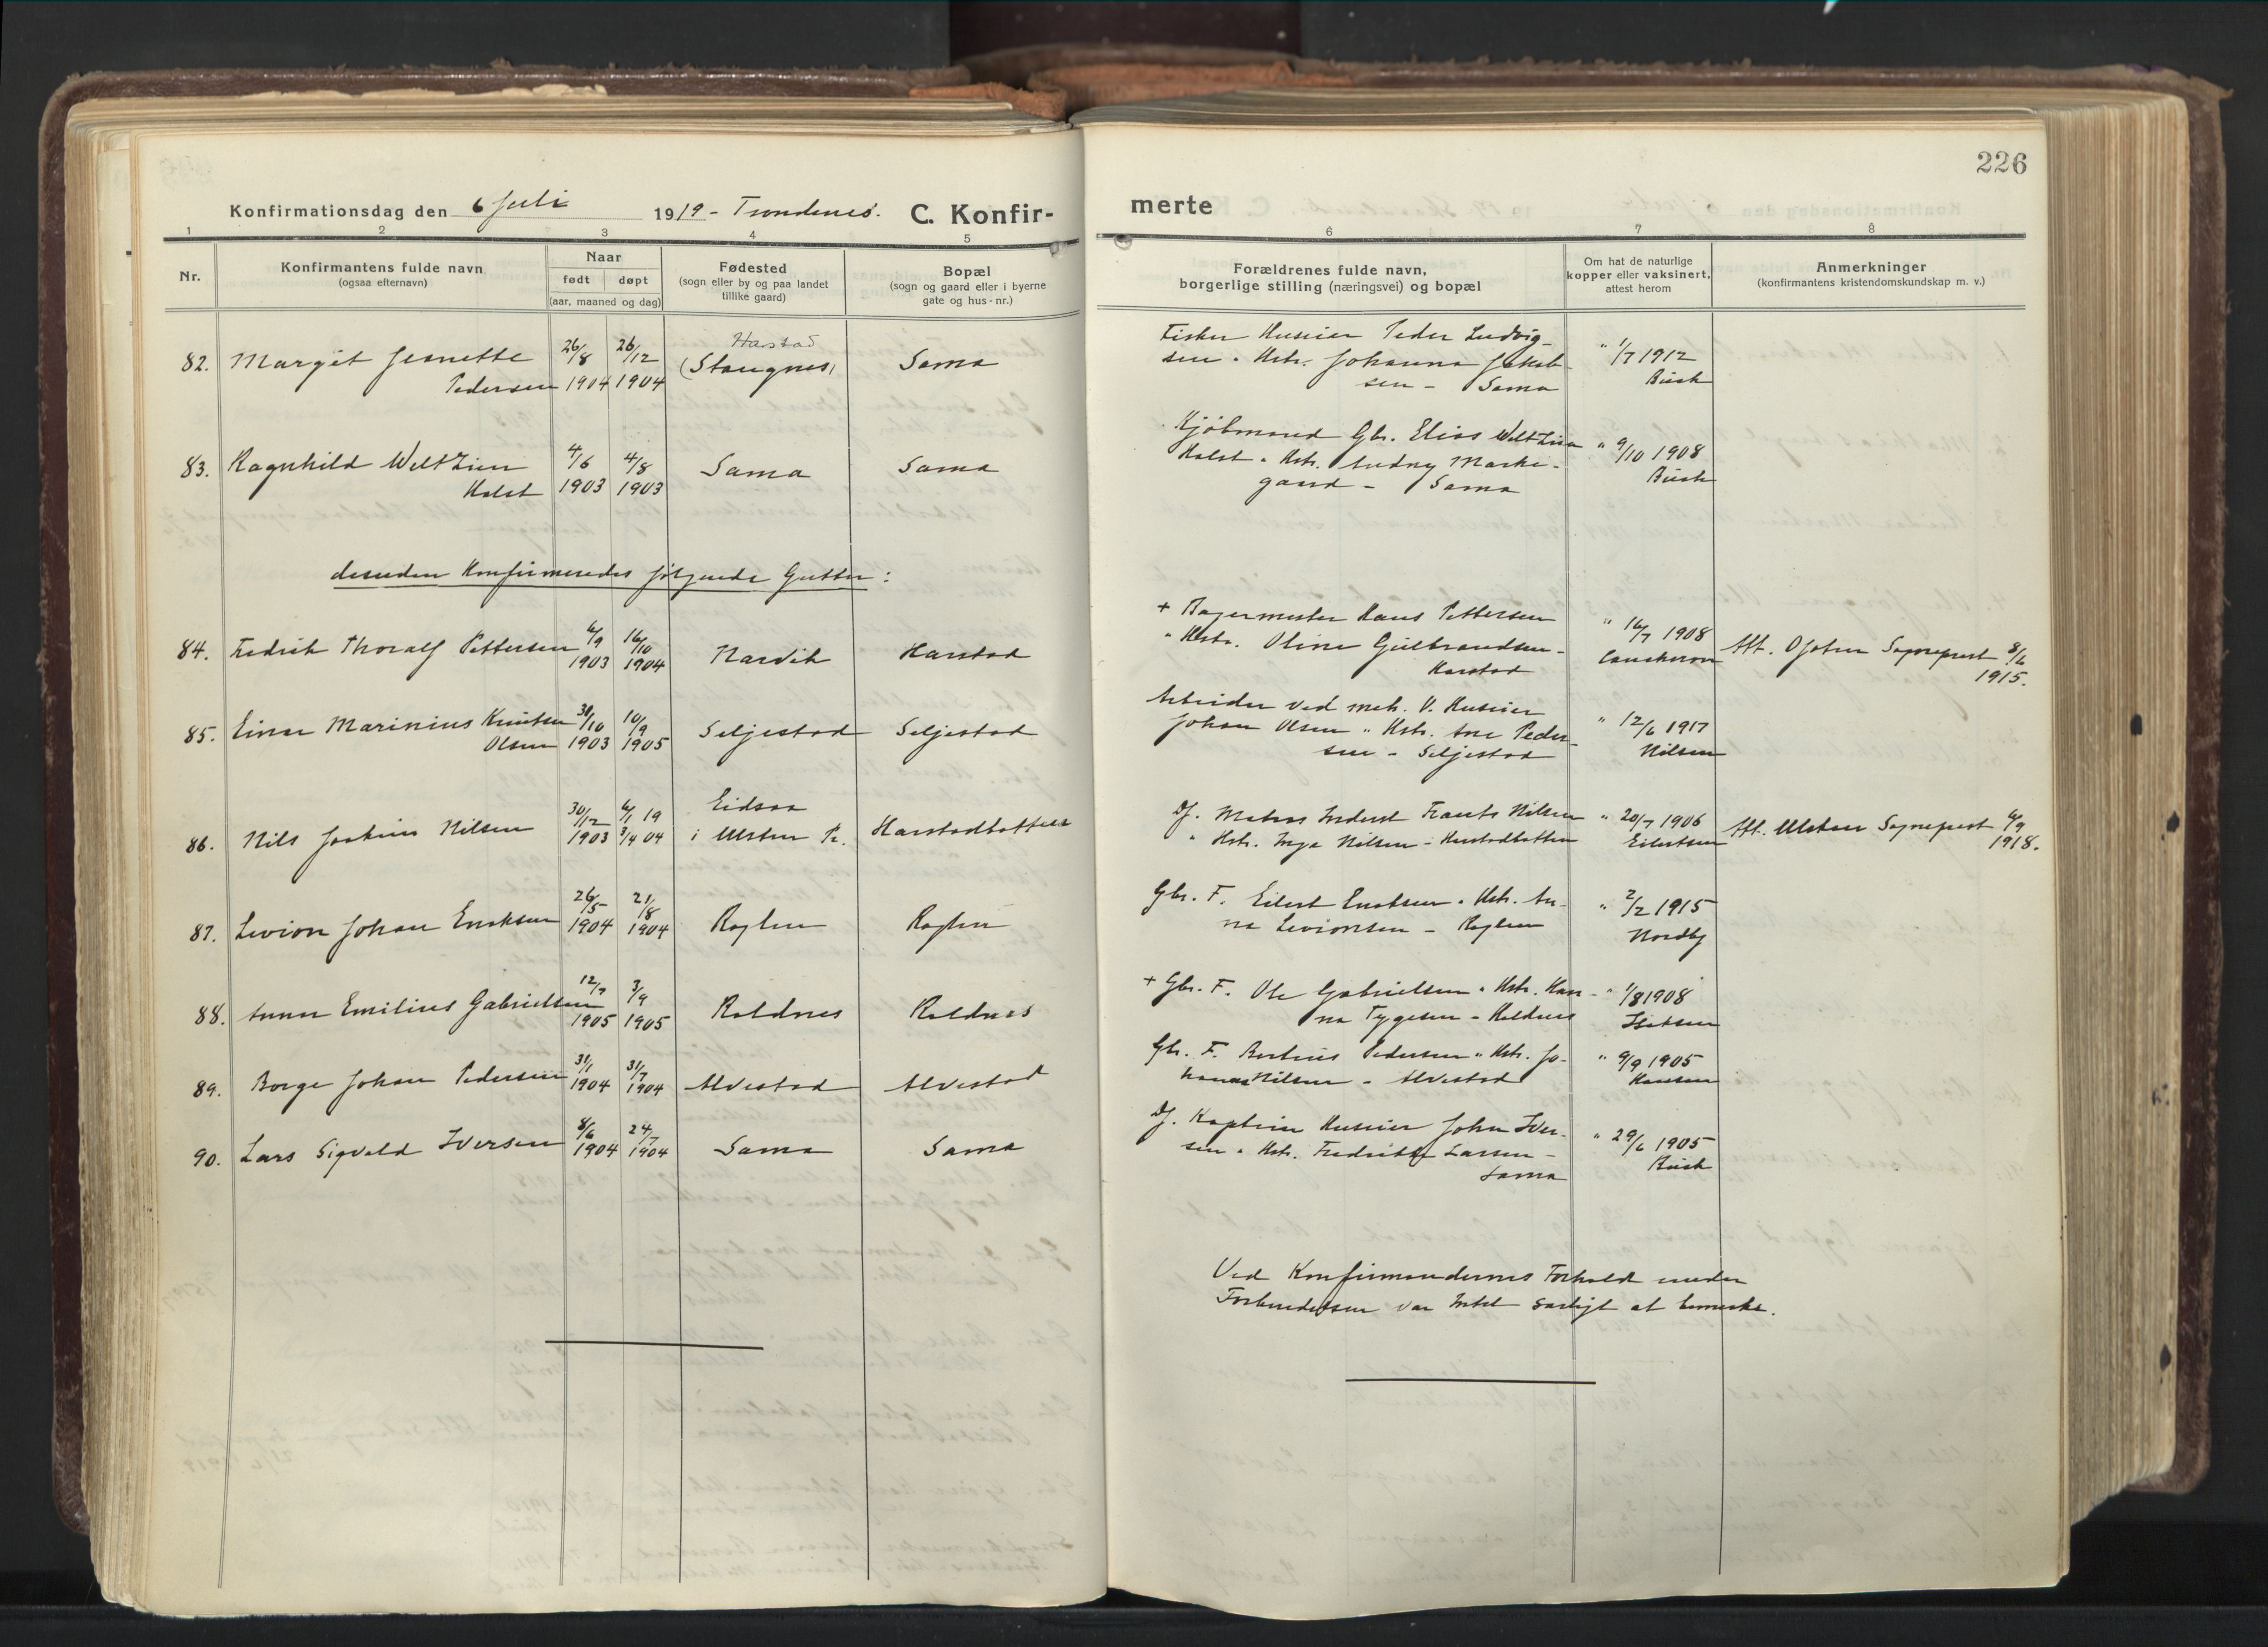 226
Konfirmationsdag den 6 Juli 1919 - Trondenes. C. Konfir-
merte
1 2 3 4 5 6 7 8
Nr.
Konfirmantens fulde navn
(ogsaa efternavn)
Naar
født døpt
(aar, maaned og dag)
Fødested
(sogn eller by og paa landet
tillike gaard)
Bopæl
(sogn og gaard eller i byerne
gate og hus-nr.)
Forældrenes fulde navn,
borgerlige stilling (næringsvei) og bopæl
Om hat de naturlige
kopper eller vaksinert,
attest herom
Anmerkninger
(konfirmantens kristendomskundskap m. v.)
82. Margit Jeanette
Pedersen
26/8 1904
26/12 1904
Harstad
(Stangnes)
Sama
Fisker Huseier Peder Ludvig-
sen " Hstr. Johanna Jakob-
sen - Sama
" 1/7 1912
Busch
83. Ragnhild Weltzien
Holst
4/6 1903
4/8 1903
Sama
Sama
Kjöbmand Gbr. Elias Weltzien
Holst " Hstr. Audny Marke-
gaard - Sama
" 9/10 1908
Busch
desuden Konfirmeredes følgende Gutter:
84. Fedrik Thoralf Pettersen
6/9 1903
16/10 1904
Narvik
Harstad
+ Bagermester Hans Pettersen
" Hstr. Oline Gulbrandsen -
Harstad
" 16/7 1908
Att. O Sogneprest 8/6
1915.
85. Einar Marinius Knutsen
Olsen
31/10 1903
10/9 1905
Seljestad
Seljestad
Arbeider ved mek. V. Huseier
Johan Olsen " Hstr. Ane Peder-
sen - Seljestad
" 12/6 1917
Nilsen
86. Nils Joakim Nilsen
30/12 1903
6/1 19
3/4 04
Eidsaa
i Ulsten Pr.
Harstadbotten
Df. Matros Inderst Frants Nilsen
" Hstr. Inga Nilsen - Harstadbotten
" 20/7 1906
Eilertsen
Att. Ulsten Sogneprest 6/9
1918.
87. Levion Johan Enoksen
26/5 1904
21/8 1904
Roglen
Roglen
Gbr. F. Eilert Enoksen " Hstr. An-
na Levionsen - Roglen
" 2/2 1915
Nordby
88. Gunnar Emilius Gabrielsen
12/7 1905
3/9 1905
Roldnes
Roldnes
+ Gbr. F. Ole Gabrielsen " Hstr. Han-
na Tygesen - Roldnes
" 1/8 1908
Isaksen
89. Borge Johan Pedersen
31/1 1904
31/7 1904
Alvestad
Alvestad
Gbr. F. Berteus Pedersen " Hstr. Jo-
hanna Nilsen - Alvestad
" 9/9 1905
Hansen
90. Lars Sigvald Iversen
8/6 1904
24/7 1904
Sama
Sama
Df. Kaptein Huseier John Iver-
sen " Hstr. Fredrikke Larsen -
Sama
" 29/6 1905
Busch
Ved Konfirmandernes Forhold under
Forberedelsen var Intet særligt at bemerke.